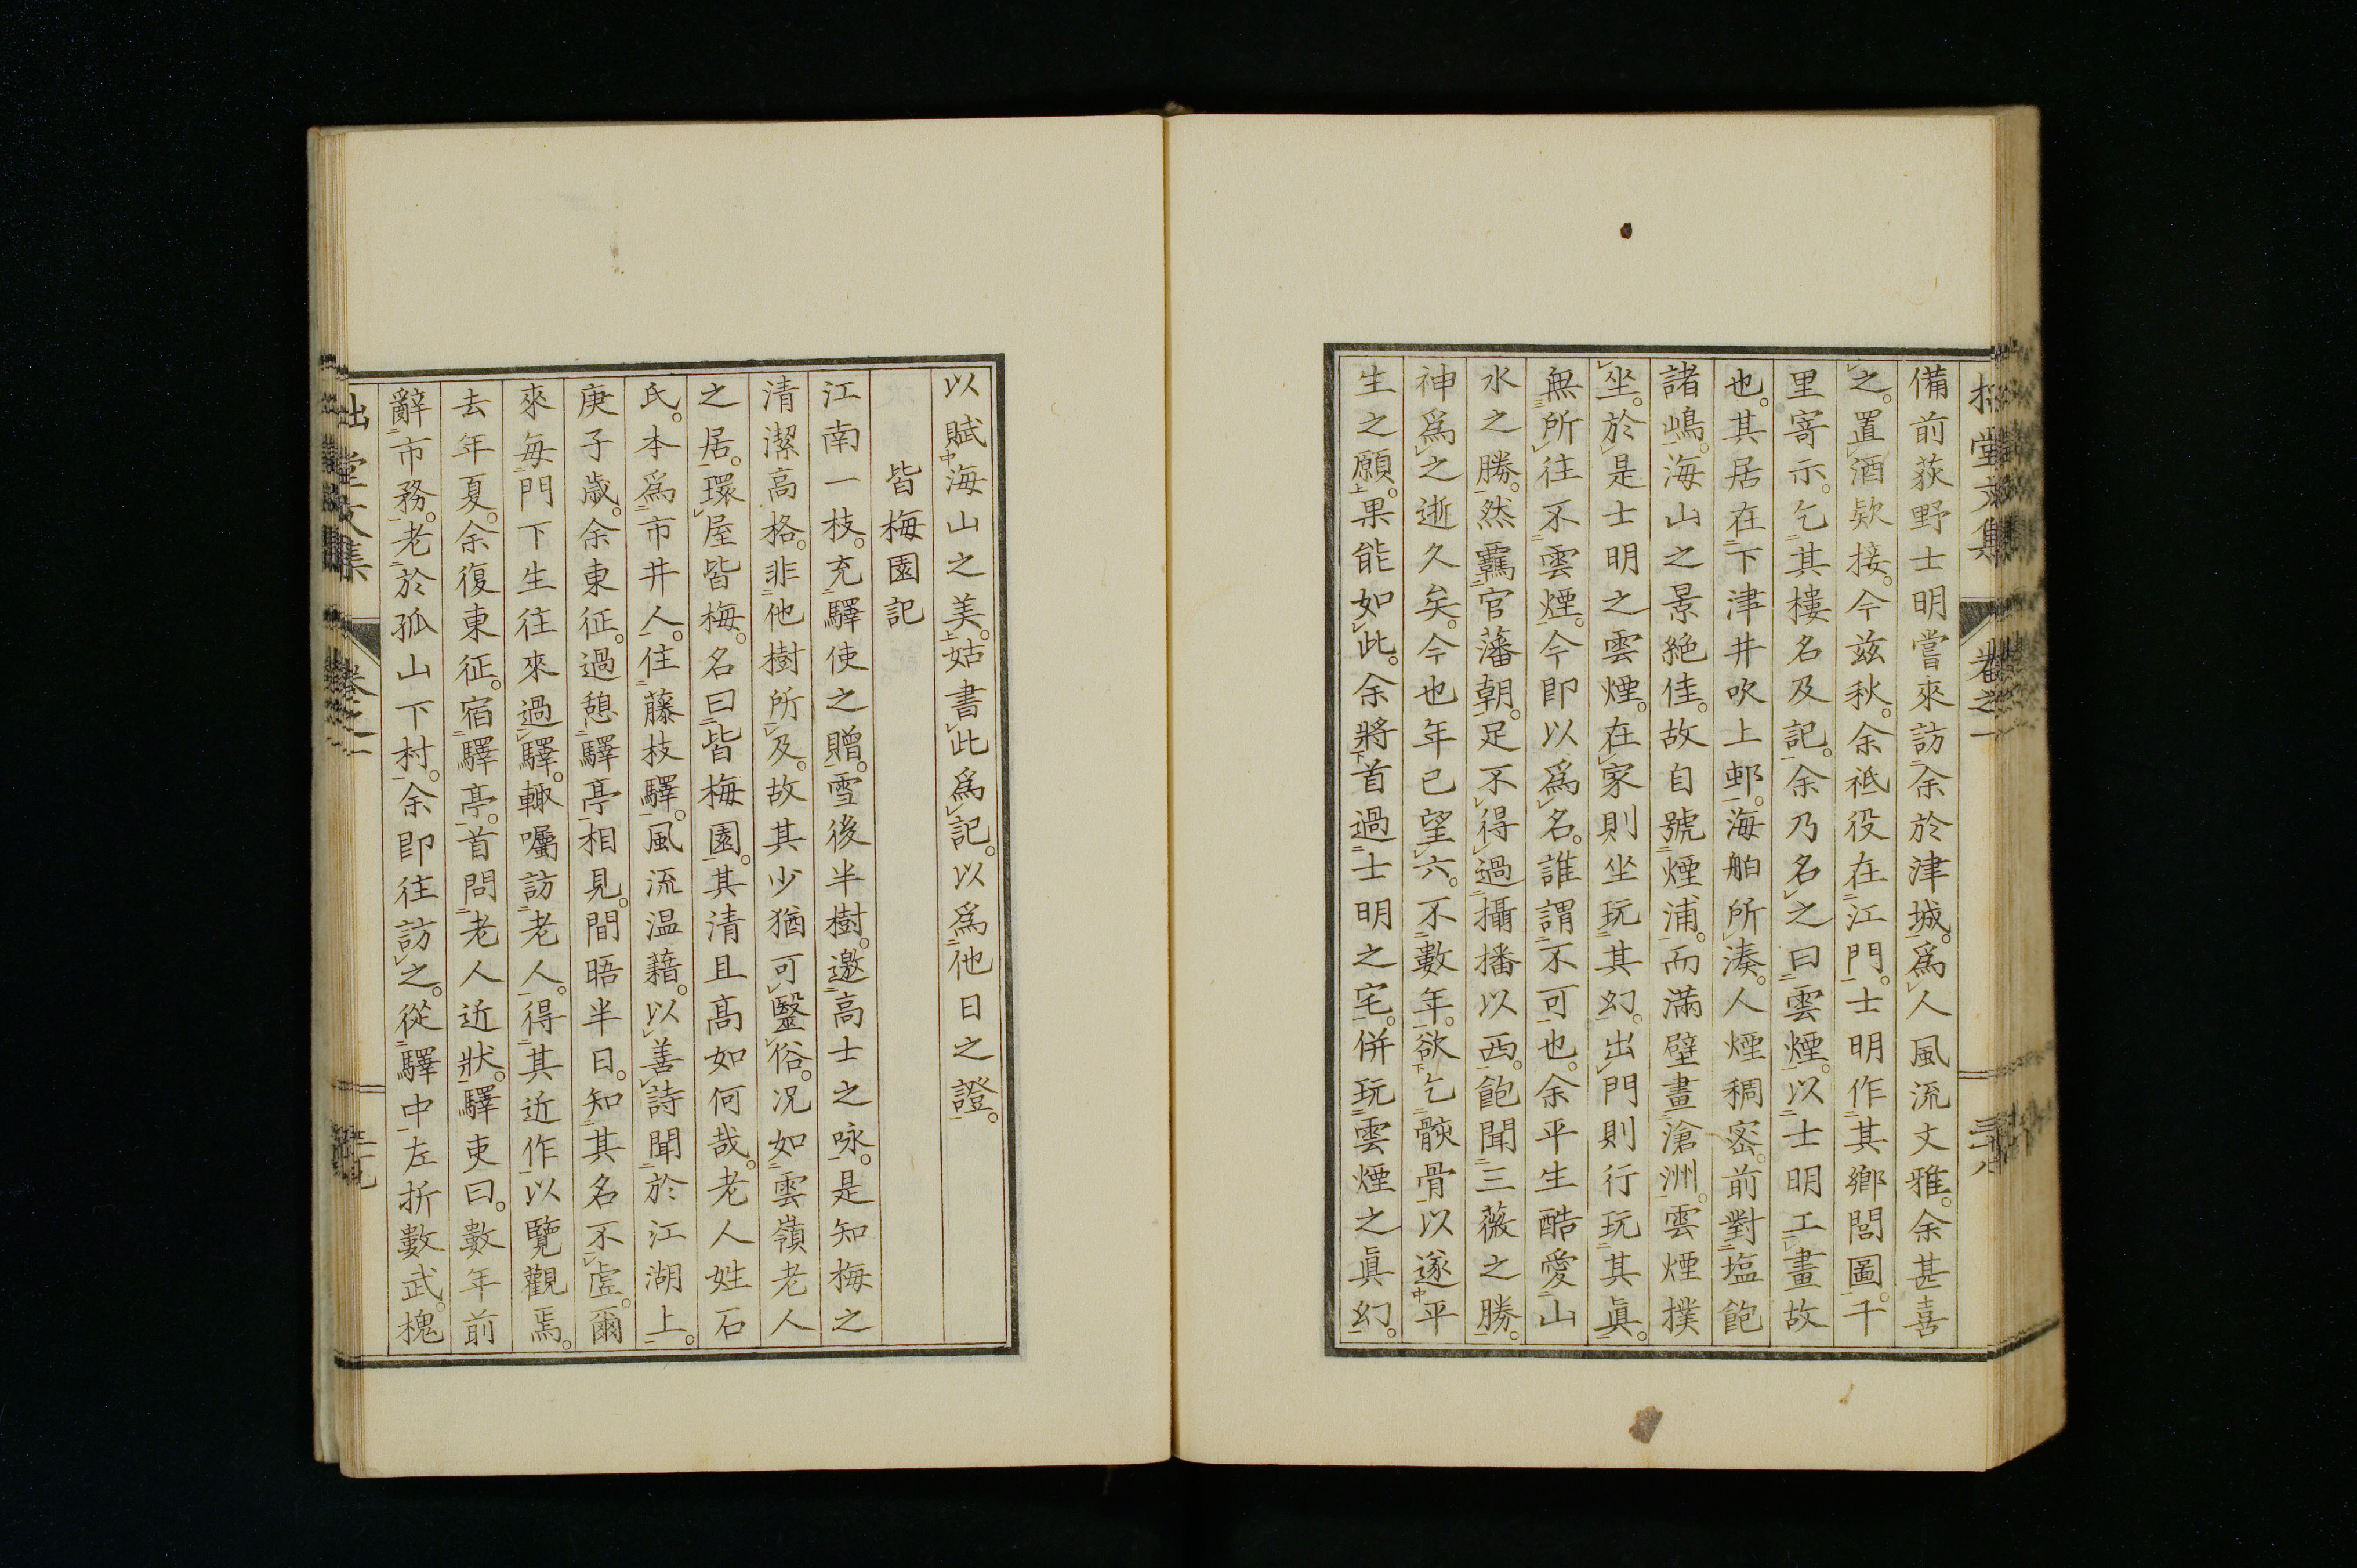 備前荻野士明嘗來訪余於津城。爲人風流文雅。余甚喜
之。置酒欵接。今茲秋。余祗役在江門。士明作其鄕閭圖。千
里寄示。乞其樓名及記。余乃名之曰雲煙。以士明工畫故
也。其居在下津井吹上邨。海舶所湊。人煙稠密。前對塩飽
諸嶋。海山之景絶佳。故自號煙浦。而滿壁畫滄洲。雲煙撲
坐。於是士明之雲煙。在家則坐玩其幻。出門則行玩其眞。
無所往不雲煙。今即以爲名。誰謂不可也。余平生酷愛山
水之勝。然覊官藩朝。足不得過攝播以西。飽聞三薇之勝。
神爲之逝久矣。今也年已望六。不數年。欲乞骸骨以遂平
生之願。果能如此。余將首過士明之宅。併玩雲煙之眞幻。
以賦海山之美。姑書此爲記。以爲他日之證。
皆梅園記
江南一枝。充驛使之贈。雪後半樹。邀高士之咏。是知梅之
清潔高格。非他樹所及。故其少猶可毉俗。况如雲嶺老人
之居。環屋皆梅。名曰皆梅園。其清且高如何哉。老人姓石
氏。本爲市井人。住藤枝驛。風流温藉。以善詩聞於江湖上。
庚子歲。余東征。過憩驛亭。相見。間晤半日。知其名不虛。爾
來毎門下生往來過驛。輙囑訪老人。得其近作以覽觀焉。
去年夏。余復東征。宿驛亭。首問老人近狀。驛吏曰。數年前
辭市務。老於孤山下村。余即往訪之。從驛中左折數武。槐